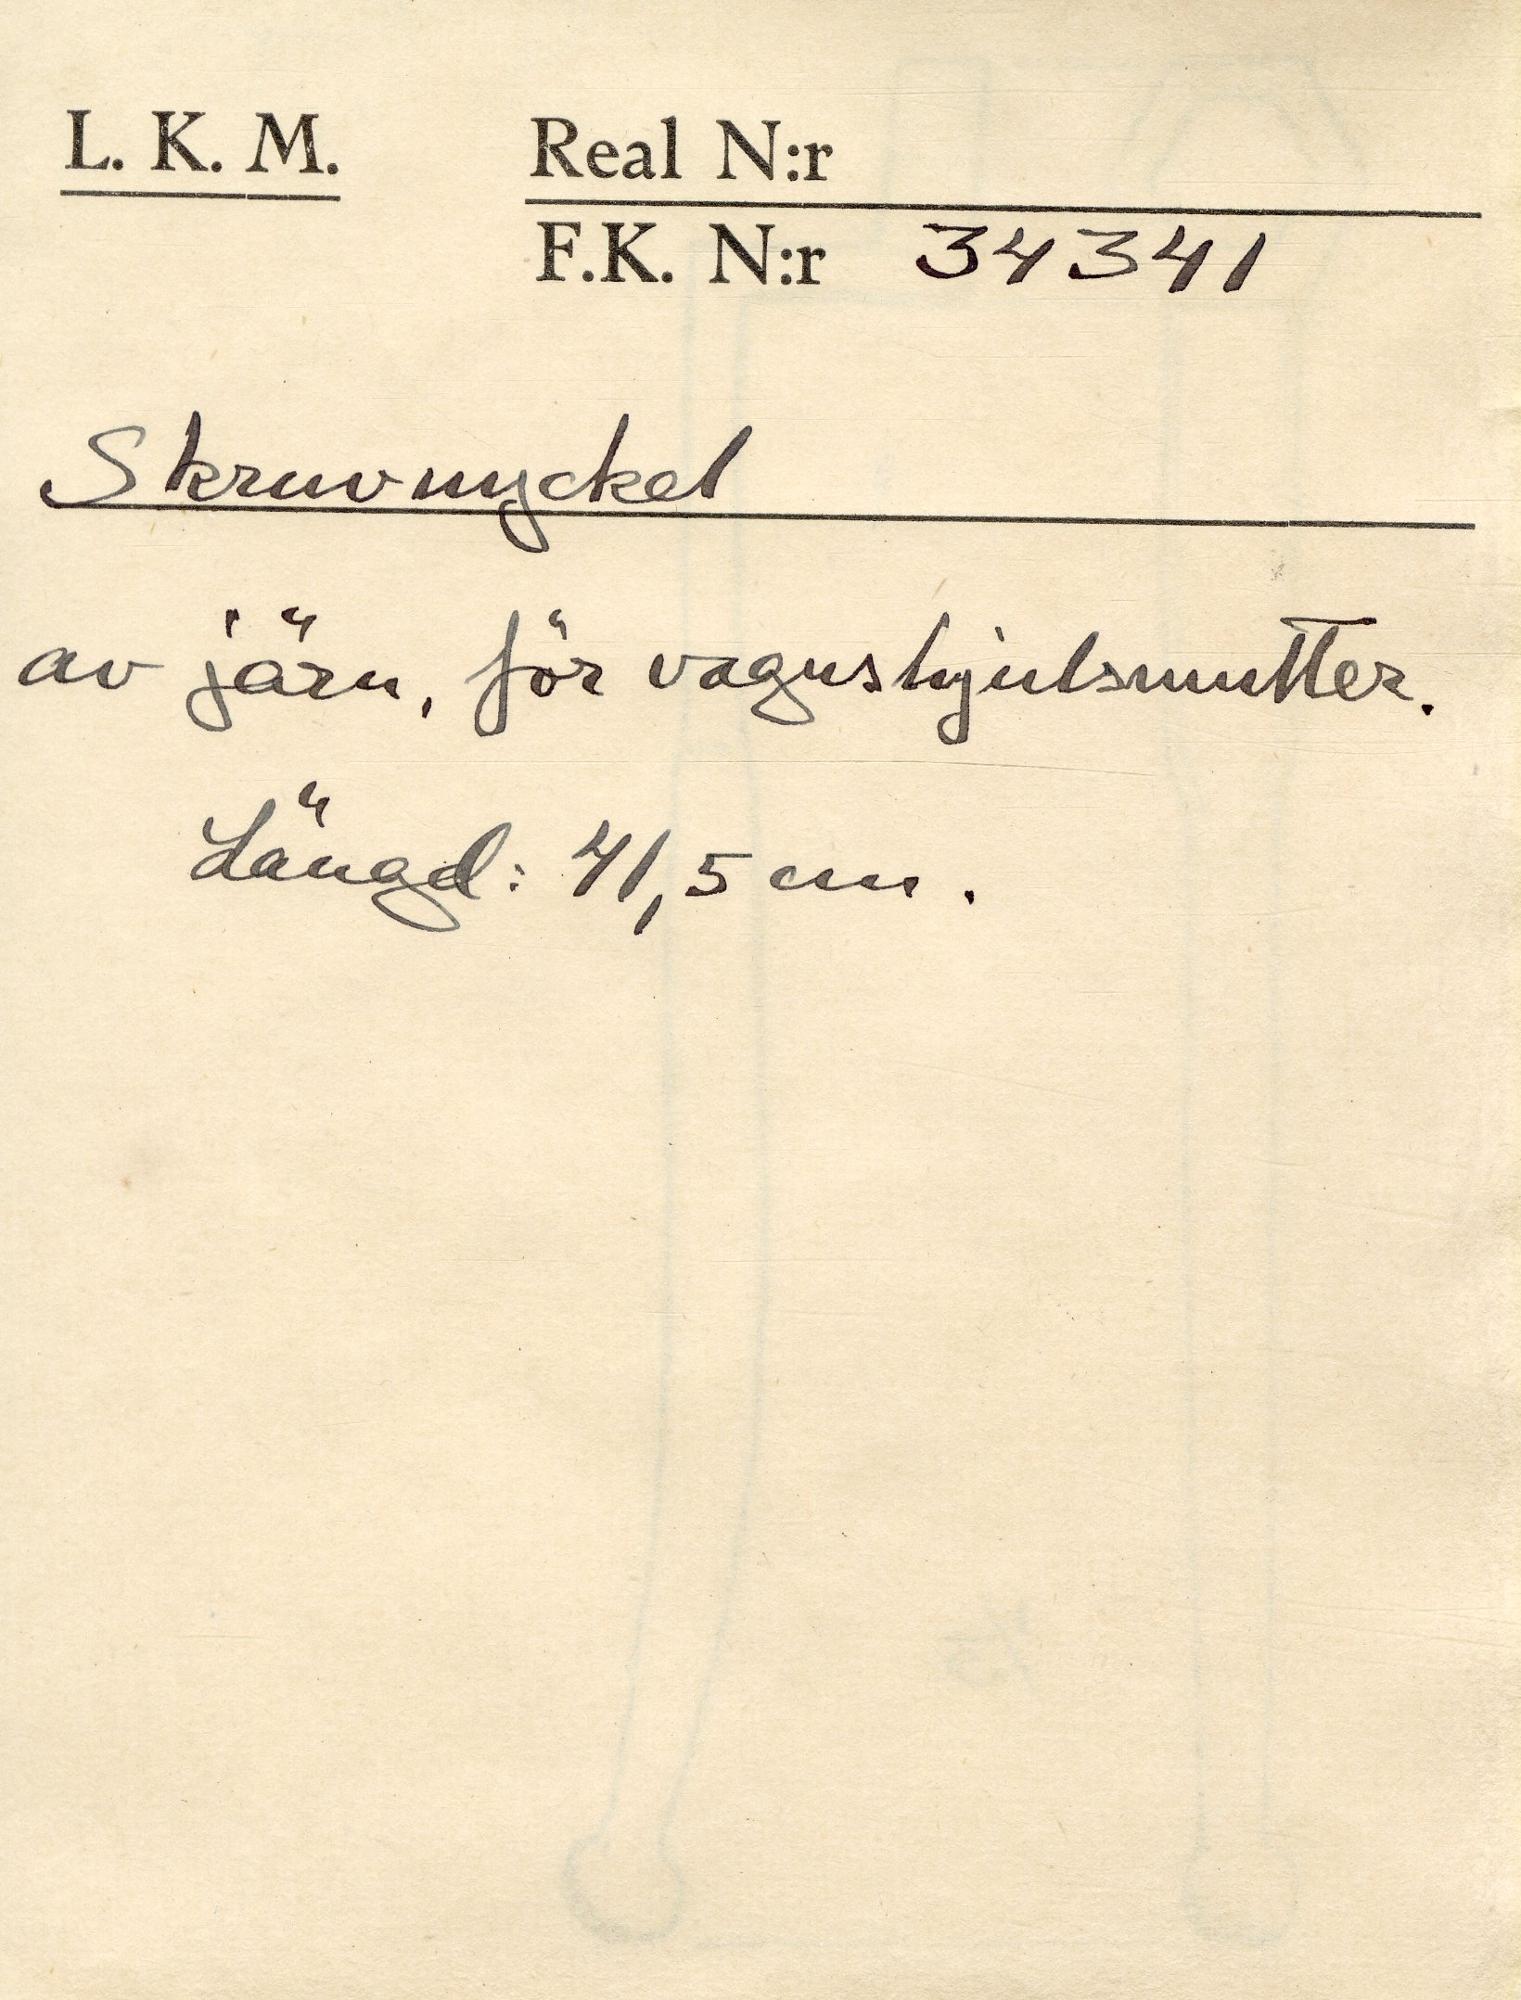 L. K. M.
Real N:r
F.K. N:r 34341
Skruvnyckel
av järn, för vagnshjulsmutter.
Längd: 41,5 cm.